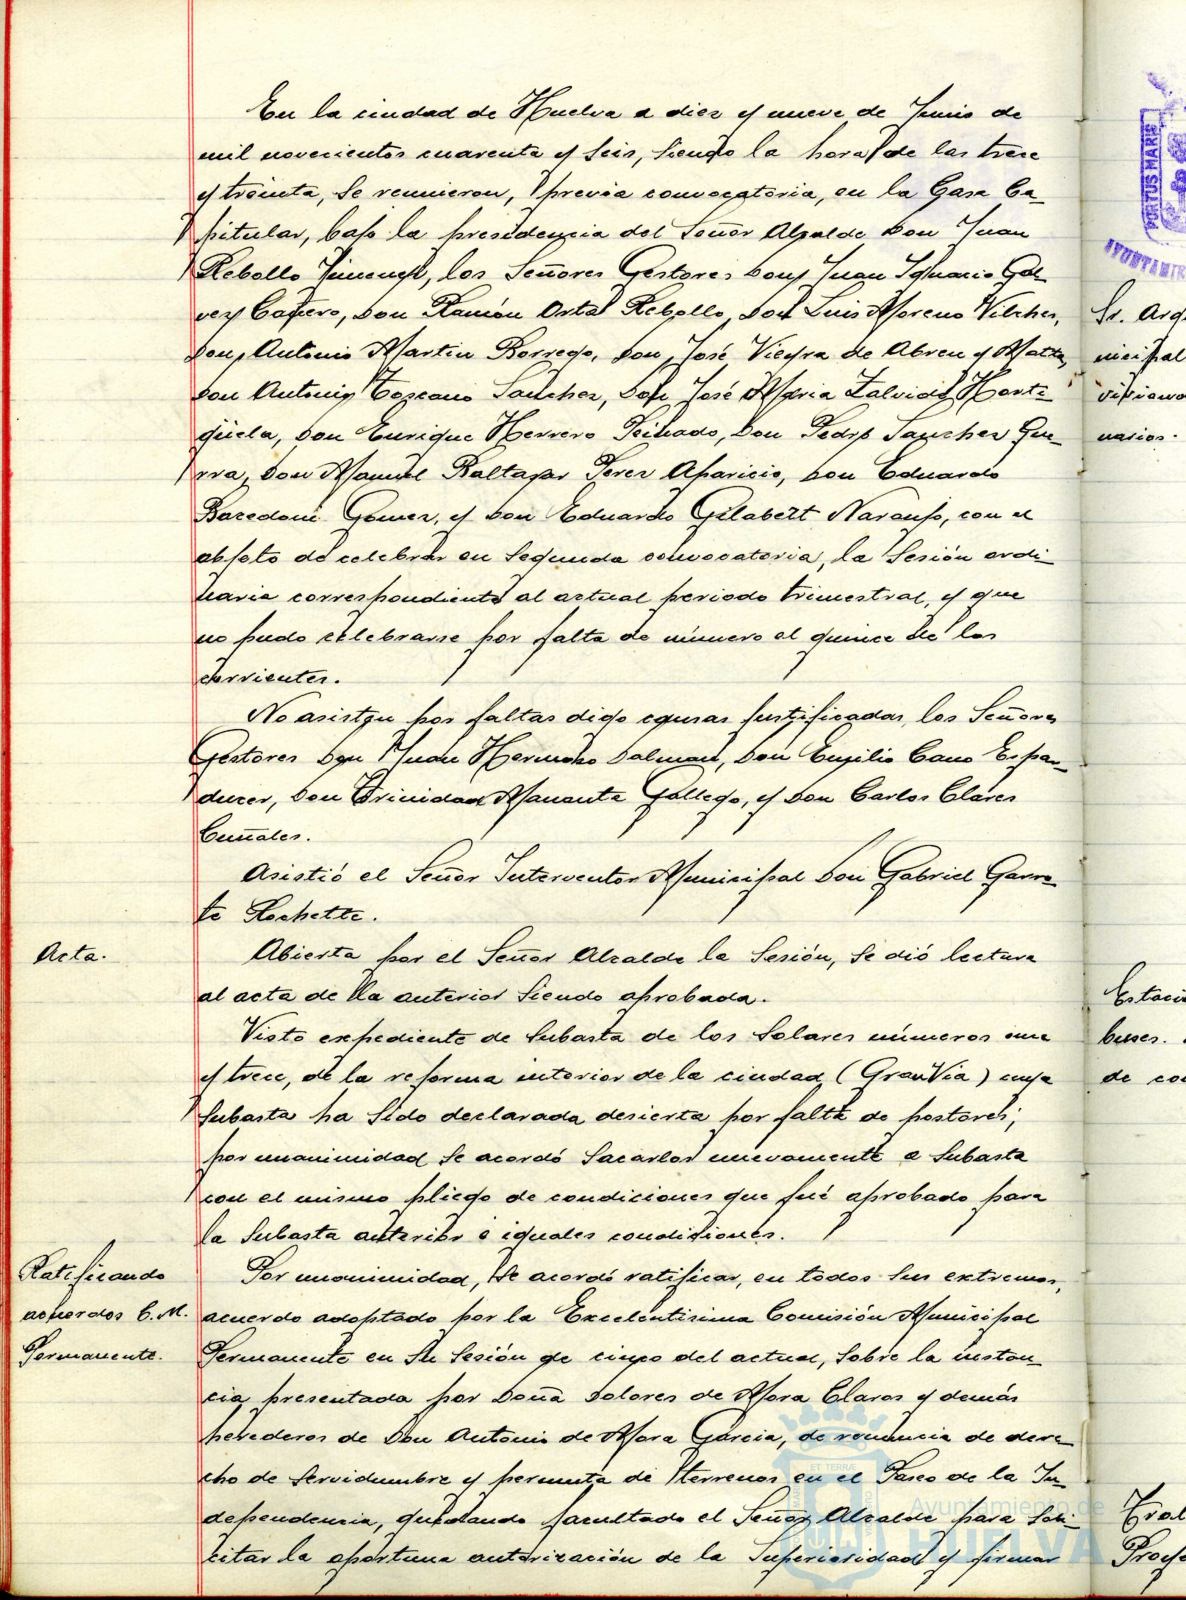 En la ciudad de Huelva a diez y nueve de Junio de
mil novecientos cuarenta y seis, siendo la hora de las trece
y treinta, se reunieron, previa convocatoria, en la Casa Ca-
pitular, bajo la presidencia del Señor Alcalde Don Juan
Rebollo Jimenez, los Señores Gestores Don Juan Ignacio Gal-
vez Cañero, Don Ramón Ortal Rebollo, Don Luis Moreno Vilches,
Don Antonio Martin Borrego, Don José Vieyra de Abreu y Matta,
Don Antonio Toscano Sanchez, Don José Maria Zalvide Horti-
güela, Don Enrique Herrero Peinado, Don Pedro Sanchez Gue-
rra, Don Manuel Baltasar Perez Aparicio, Don Eduardo
Gomez, y Don Eduardo Gilabert Naranjo, con el
objeto de celebrar en segunda convocatoria, la Sesión ordi-
naria correspondiente al actual periodo trimestral, y que
no pudo celebrarse por falta de número el quince de los
corrientes.
No asisten por faltas digo causas justificadas, los Señores
Gestores Don Juan Hermoso Dalman, Don Emilio Cano Espan-
durez, Don Trinidad Gallego, y Don Carlos Clares
Asistió el Señor Interventor Municipal Don Gabriel Garra-
te Rochette.
Acta.
Abierta por el Señor Alcalde la Sesión, se dió lectura
al acta de la anterior siendo aprobada.
Visto expediente de subasta de los solares números once
y trece, de la reforma interior de la ciudad (Gran Via) cuya
subasta ha sido declarada desierta por falta de postores;
por unanimidad se acordó sacarlos nuevamente a subasta
con el mismo pliego de condiciones que fué aprobado para
la subasta anterior e iguales condiciones.
Ratificando
acuerdos C. M.
Permanente.
Por unanimidad, se acordó ratificar, en todos sus extremos,
acuerdo adoptado por la Excelentisima Comisión Municipal
Permanente en su Sesión de cinco del actual, sobre la instan-
cia presentada por Doña Dolores de Mora Claros y demás
herederos de Don Antonio de Mora Garcia, de renuncia de dere-
cho de servidumbre y permuta de terrenos en el Paseo de la In-
dependencia, quedando facultado el Señor Alcalde para soli-
citar la oportuna autorización de la Superioridad y firmar
PORTUS MARIS
Sr. Arq
nicipal
narios.
Estaci
buses.
de co
Ayuntamiento de
HUELVA